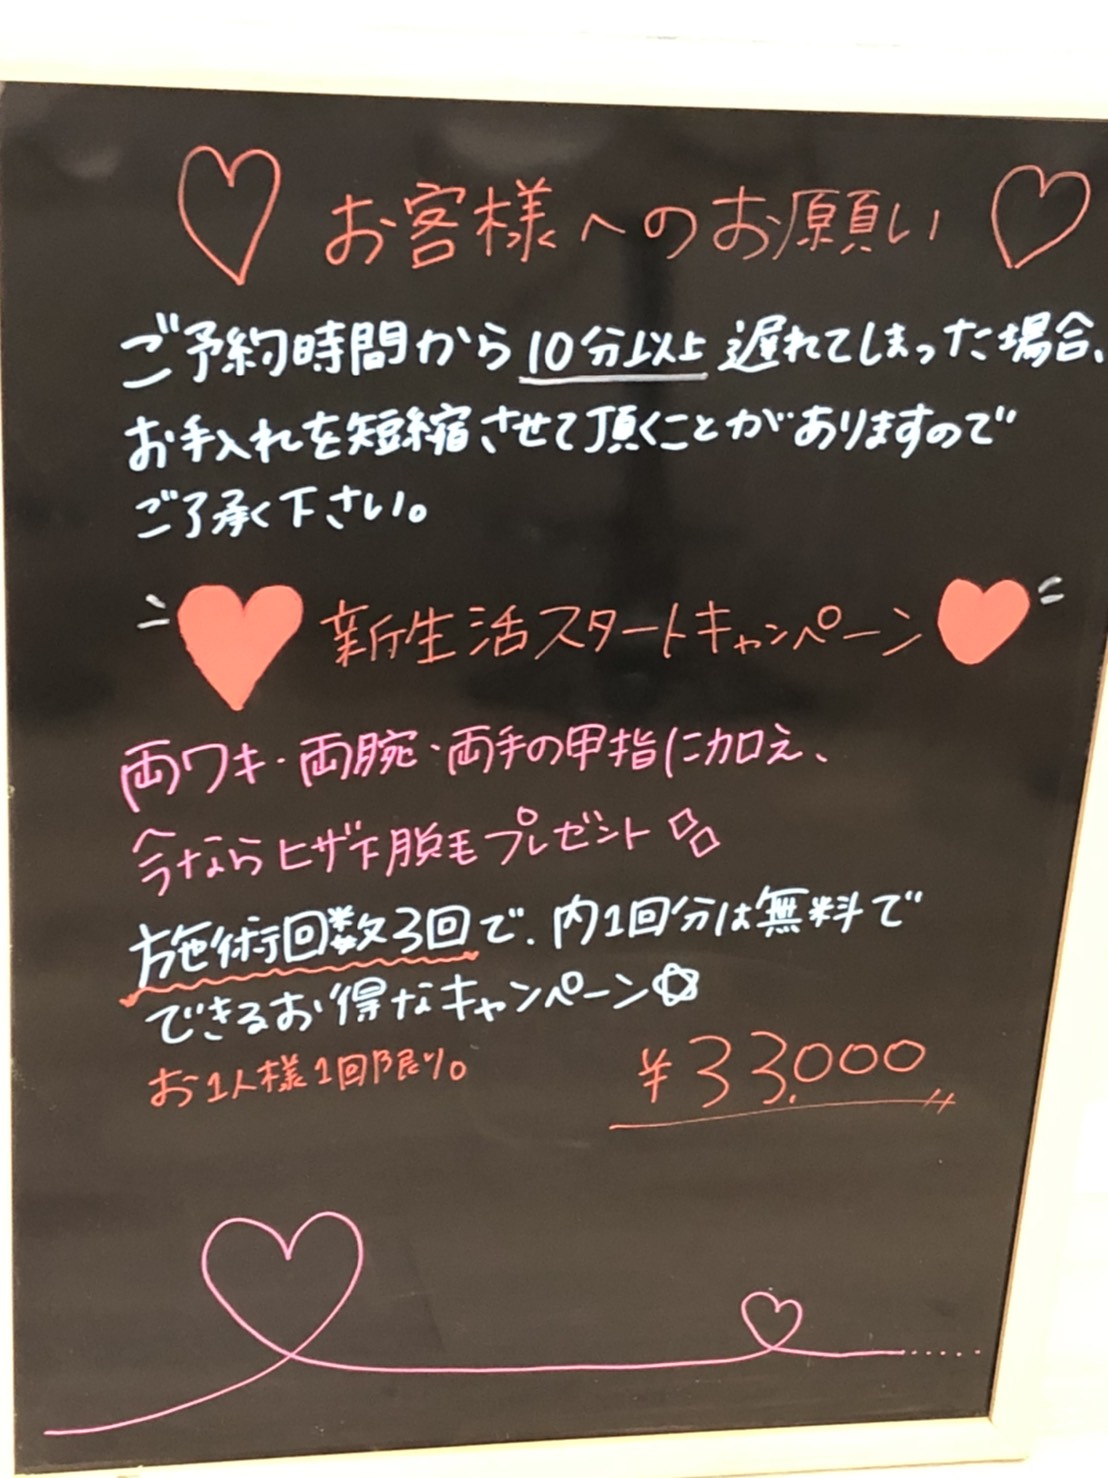 お客様へのお願い
ご予約時間から10分以上遅れてしまった場合、
お手入れを短縮させて頂くことがありますので
ご了承く下さい。
新生活スタートキャンペーン
両ワキ・両腕・両手の甲指に加え、
今ならヒザ下脱毛プレゼント
施術回数3回で、内1回分は無料で
できるお得なキャンペーン☆
お1人様1回限り。
¥33,000